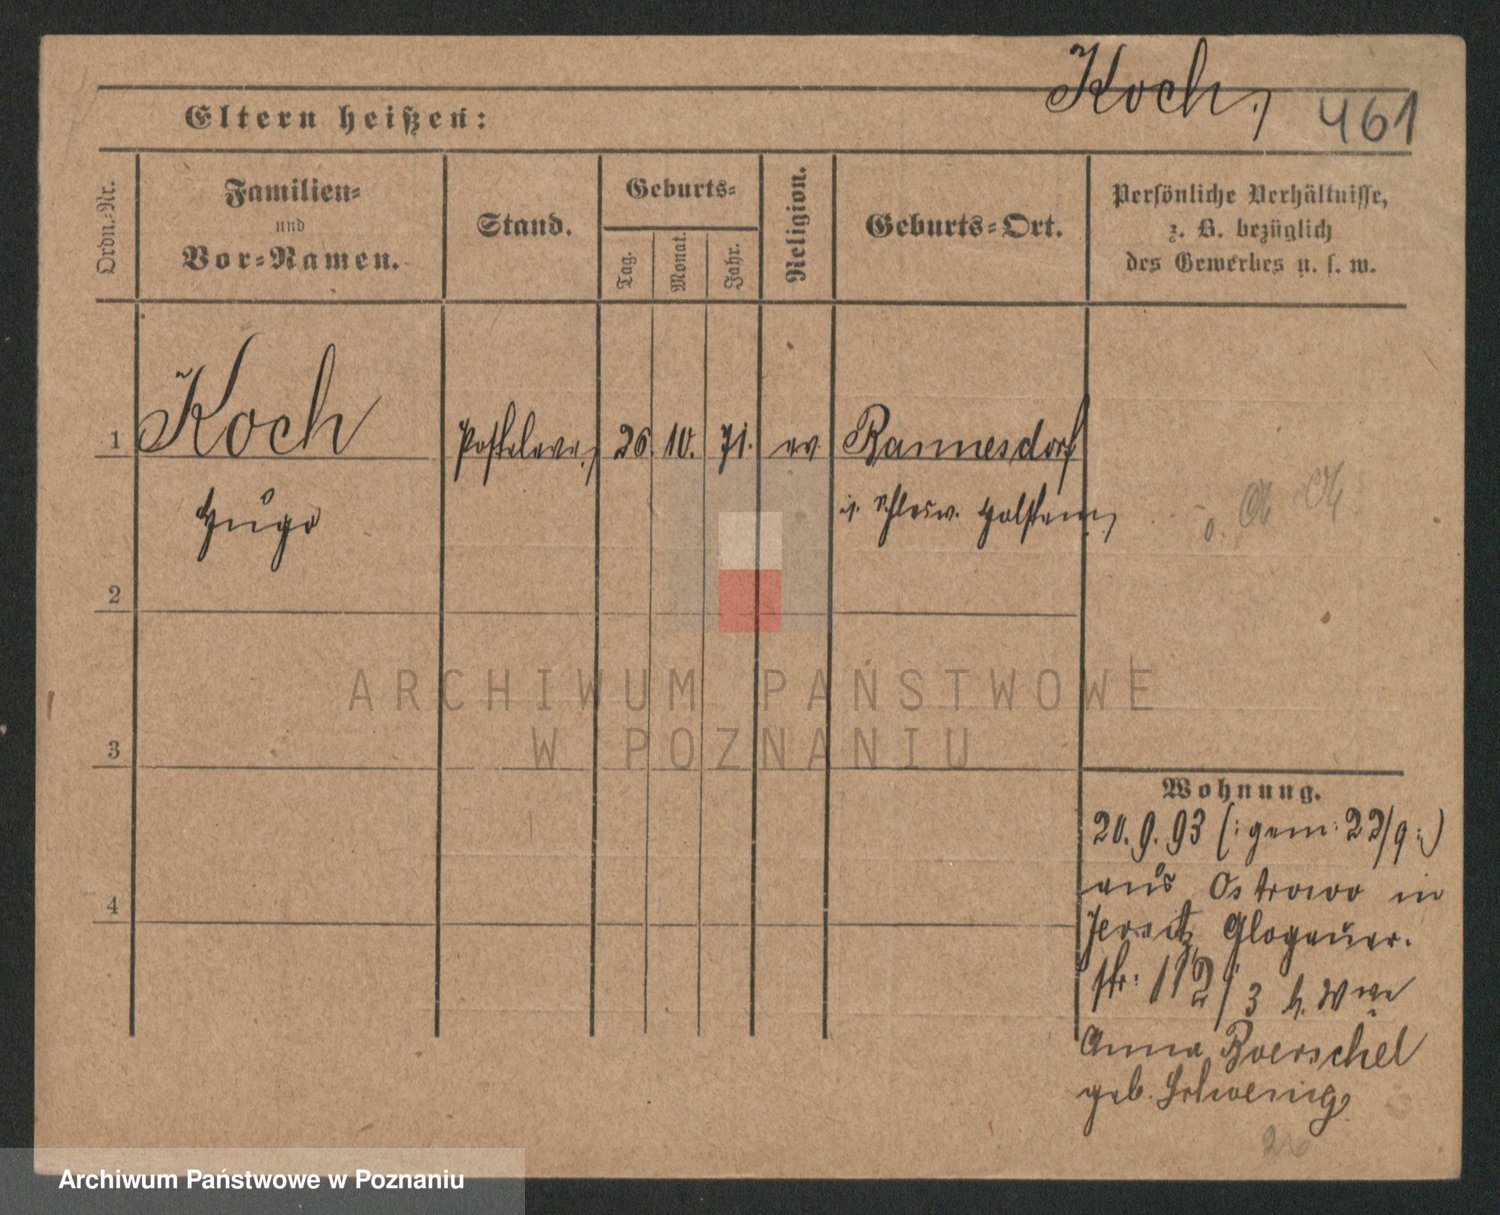 Koch,
461
Eltern heißen:
Ordn.=Nr.
Familien=
und
Vor=Namen.
Stand.
Geburts=
Tag.
Monat.
Jahr.
Religion.
Geburts=Ort.
Persönliche Verhältnisse,
z. B. bezüglich
des Gewerbes u. s. w.
1
Koch
Posteleve,
26.
10.
71.
ev
Bannesdorf
Hugo
i. Schlesw. Holstein,
2
3
Wohnung.
20. 9. 93 (: gem: 22/9 :)
aus Ostrowo in
Jersitz Glogauer-
str: 112/3 b. Wwe
4
Anna Boerschel
geb.
26
ARCHIWUM PAŃSTWOWE
W POZNANIU
Archiwum Państwowe w Poznaniu